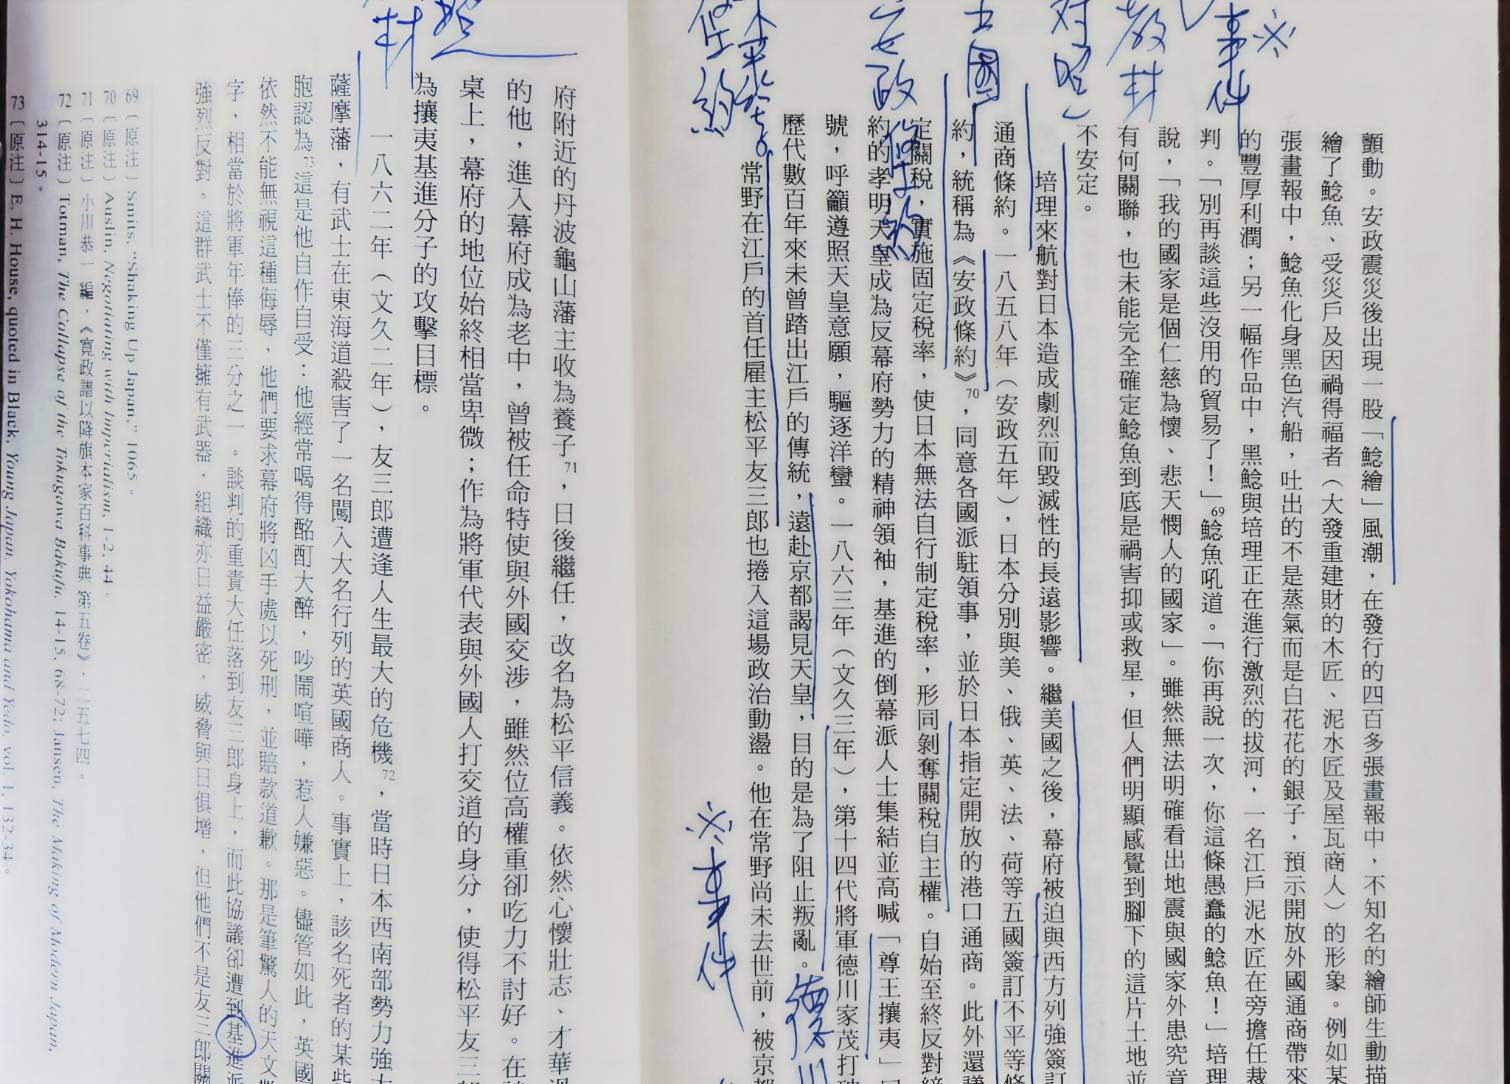 顫動。安政震災後出現一股「鯰繪」風潮，在發行的四百多張畫報中，不知名的繪師生動描
繪了鯰魚、受災戶及因禍得福者（大發重建財的木匠、泥水匠及屋瓦商人）的形象。例如某
張畫報中，鯰魚化身黑色汽船，吐出的不是蒸氣而是白花花的銀子，預示開放外國通商帶來
的豐厚利潤；另一幅作品中，黑鯰與培理正在進行激烈的拔河，一名江戶泥水匠在旁擔任裁
判。「別再談這些沒用的貿易了！」69鯰魚吼道。「你再說一次，你這條愚蠢的鯰魚！」培理
說，「我的國家是個仁慈為懷、悲天憫人的國家」。雖然無法明確看出地震與國家外患究竟
有何關聯，也未能完全確定鯰魚到底是禍害抑或救星，但人們明顯感覺到腳下的這片土地並
不安定。
培理來航對日本造成劇烈而毀滅性的長遠影響。繼美國之後，幕府被迫與西方列強簽訂
通商條約。一八五八年（安政五年），日本分別與美、俄、英、法、荷等五國簽訂不平等條
約，統稱為《安政條約》70，同意各國派駐領事，並於日本指定開放的港口通商。此外還議
定關稅，實施固定稅率，使日本無法自行制定稅率，形同剝奪關稅自主權。自始至終反對締
約的孝明天皇成為反幕府勢力的精神領袖，基進的倒幕派人士集結並高喊「尊王攘夷」口
號，呼籲遵照天皇意願，驅逐洋蠻。一八六三年（文久三年），第十四代將軍德川家茂打破
歷代數百年來未曾踏出江戶的傳統，遠赴京都謁見天皇，目的是為了阻止叛亂。
常野在江戶的首任雇主松平友三郎也捲入這場政治動盪。他在常野尚未去世前，被京都
※事件
教材
對照
五國
安政條約
不平等條約
※事件
德川
府附近的丹波龜山藩主收為養子71，日後繼任，改名為松平信義。依然心懷壯志、才華
的他，進入幕府成為老中，曾被任命特使與外國交涉，雖然位高權重卻吃力不討好。在
桌上，幕府的地位始終相當卑微；作為將軍代表與外國人打交道的身分，使得松平友三
為攘夷基進分子的攻擊目標。
一八六二年（文久二年），友三郎遭逢人生最大的危機72，當時日本西南部勢力強大
薩摩藩，有武士在東海道殺害了一名闖入大名行列的英國商人。事實上，該名死者的某些
胞認為73這是他自作自受：他經常喝得酩酊大醉，吵鬧喧嘩，惹人嫌惡。儘管如此，英國
依然不能無視這種侮辱，他們要求幕府將凶手處以死刑，並賠款道歉。那是筆驚人的天文
字，相當於將軍年俸的三分之一。談判的重責大任落到友三郎身上，而此協議卻遭到基進派
強烈反對。這群武士不僅擁有武器，組織亦日益嚴密，威脅與日俱增，但他們不是友三郎關
材
照
69〔原注〕Smits, "Shaking Up Japan," 1065。
70〔原注〕Auslin, Negotiating with Imperialism, 1-2, 44。
71〔原注〕小川恭一編，《寬政譜以降旗本家百科事典 第五卷》，二五七四。
72〔原注〕Totman, The Collapse of the Tokugawa Bakufu, 14-15, 68-72; Jansen, The Making of Modern Japan,
314-15。
73〔原注〕E. H. House, quoted in Black, Young Japan, Yokohama and Yedo, vol. 1, 132-34。